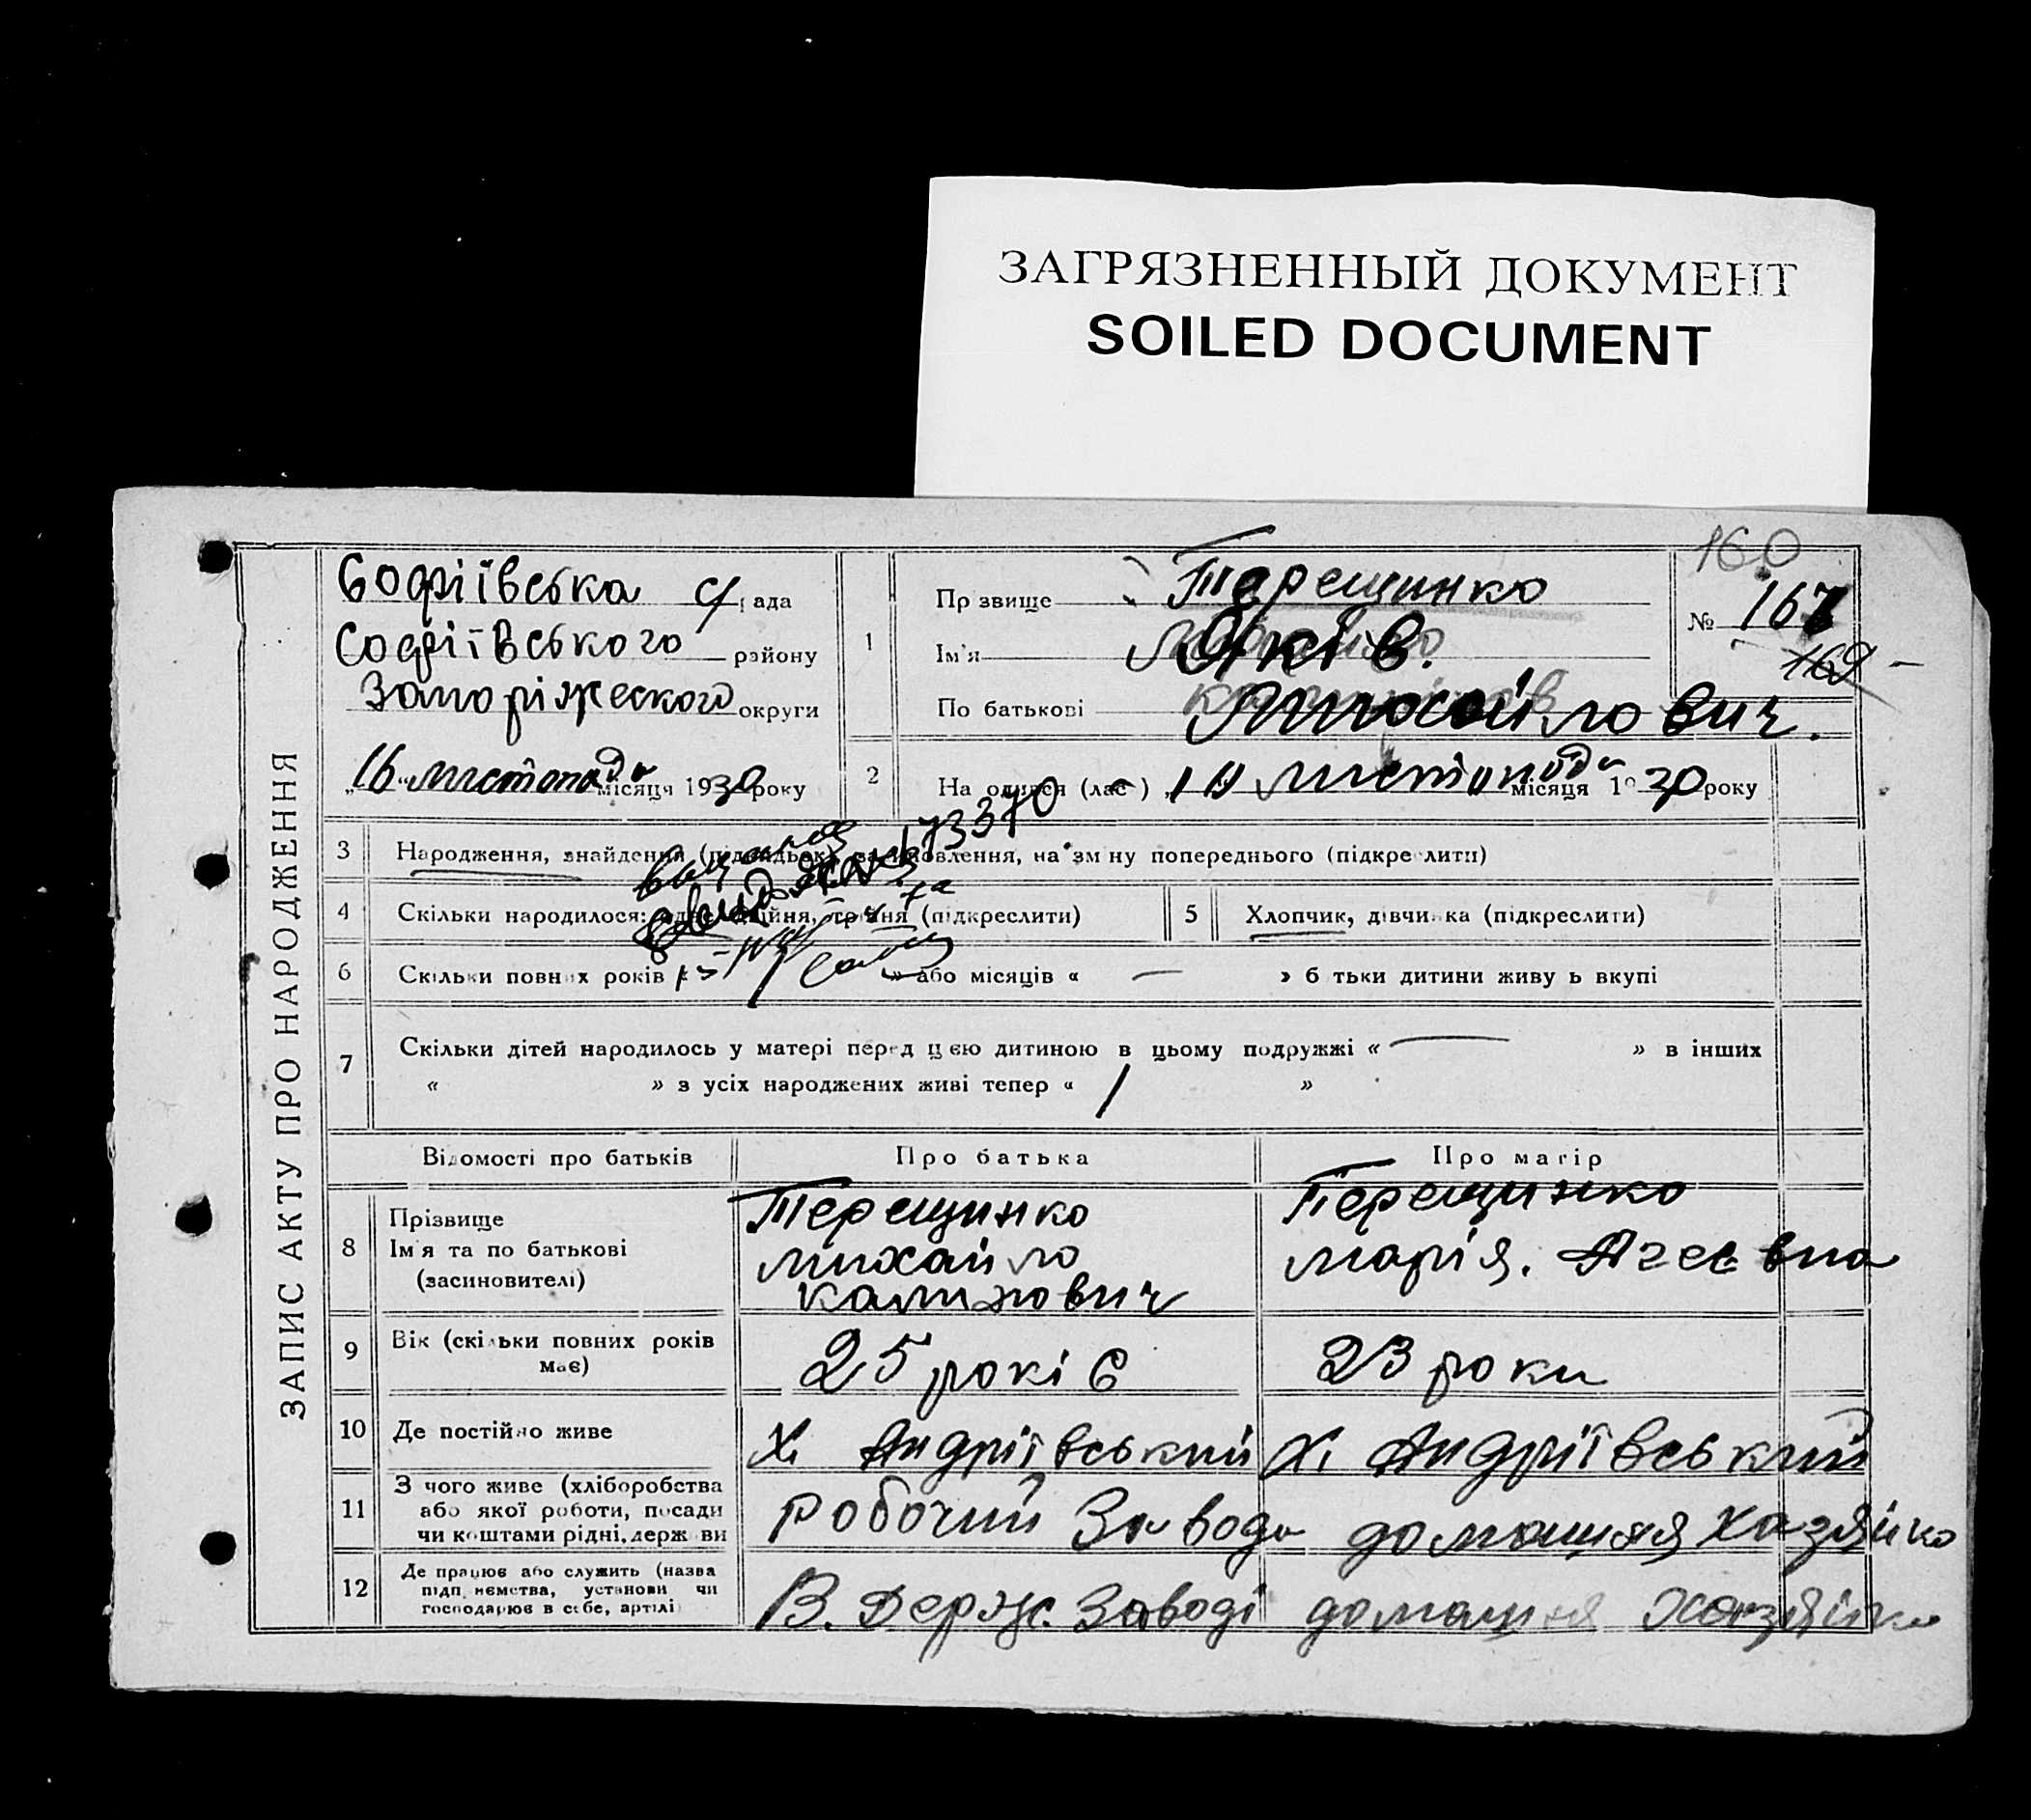 ЗАГРЯЗНЕННЫЙ ДОКУМЕНТ
SOILED DOCUMENT
160
ЗАПИС АКТУ ПРО НАРОДЖЕННЯ
Софіївська с/рада
Софіївського району
Запоріжського округи
„16“ листопада місяця 1930 року
1
Прізвище Терещинко
Ім'я Яків.
По батькові Михайлович.
№ 167
169
2 На одився (лас) листопада місяця 1930 року
3 Народження, знайдення (підкидьок), встановлення, на зміну попереднього (підкреслити)
173370
4 Скільки народилося: двійня, трійня (підкреслити)
5 Хлопчик, дівчинка (підкреслити)
6 Скільки повних років » або місяців « — » б тьки дитини живу ь вкупі
7 Скільки дітей народилось у матері перед цією дитиною в цьому подружжі « — » в інших
« » з усіх народжених живі тепер « 1 »
Відомості про батьків Про батька Про матір
8 Прізвище Терещинко Терещинко
Ім'я та по батькові Михайло Марія. Агеевна
(засиновителі) Калинович
9 Вік (скільки повних років має) 25 років 23 роки
10 Де постійно живе Х. Андріївський Х. Андріївський
11 З чого живе (хліборобства
або якої роботи, посади
чи коштами рідні, держави Робочий Завода домашняя хазяйка
12 Де працює або служить (назва
підп иємства, установи чи
господарює в себе, артілі) В. Держ. Заводі домашня хазяйка